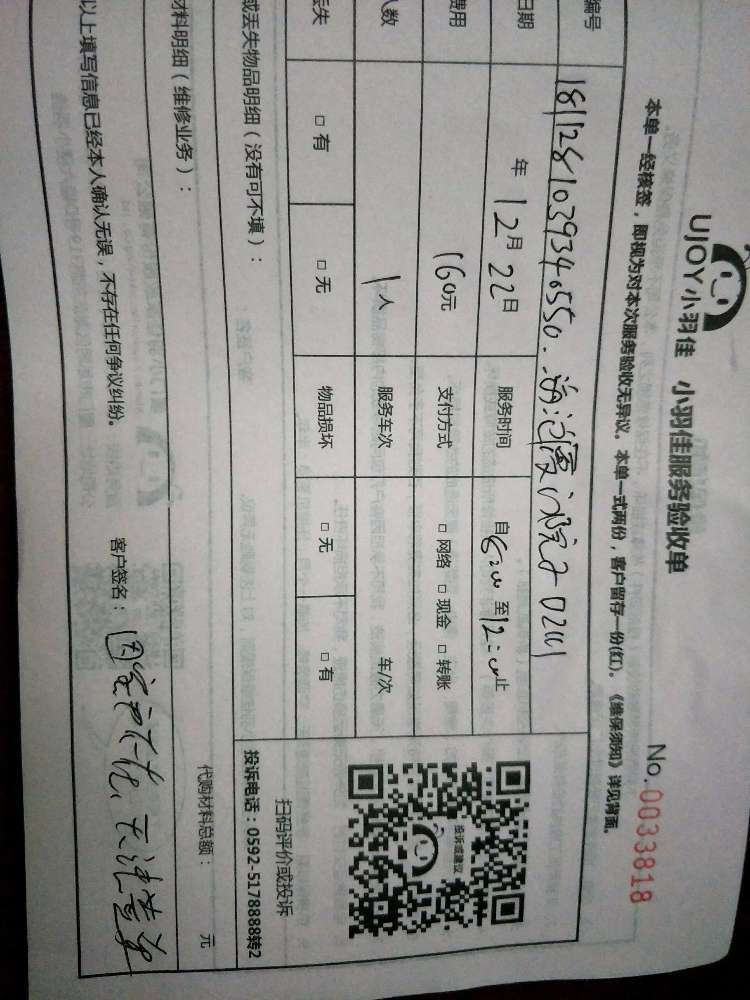 UJOY小羽佳 小羽佳服务验收单
No.0033818
本单一经核签，即视为对本次服务验收无异议。本单一式两份，客户留存一份(红)。《维保须知》详见背面。
编号 1811281039340550
日期 年 12月22日 服务时间 自8:00至12:00止
费用 160元 支付方式 □ 网络 □ 现金 □ 转账
人数 1人 服务车次 车/次
丢失 □ 有 □ 无 物品损坏 □ 无 □ 有
投诉或建议
扫码评价或投诉
投诉电话：0592-5178888转2
或丢失物品明细（没有可不填）：
材料明细（维修业务）： 代购材料总额： 元
以上填写信息已经本人确认无误，不存在任何争议纠纷。 客户签名：